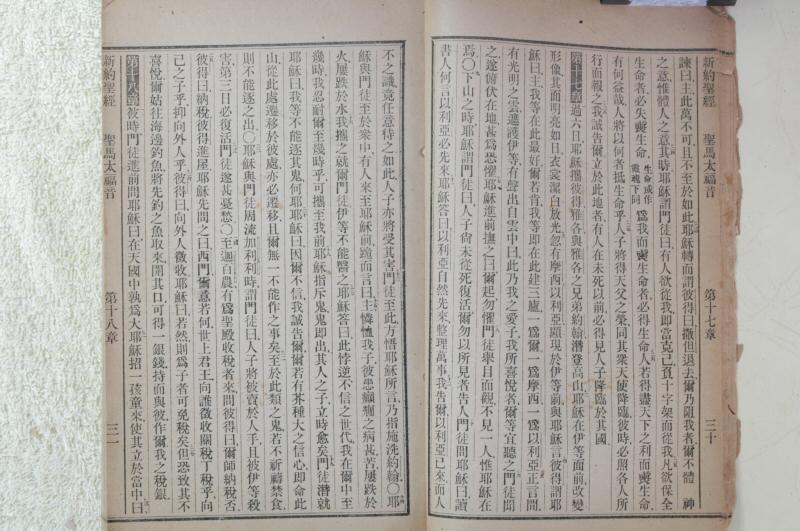 新約聖經 聖馬太福音 第十七章 三十
諫曰主此萬不可且不至於如此耶穌轉而謂彼得曰撒但退去爾乃阻我者爾不體 神
之意惟體人之意其時耶穌謂門徒曰有人欲從我即當克己負十字架而從我凡欲保全
生命者必失喪生命 生命或作靈魂下同 爲我而喪生命者必得生命人若得盡天下之利而喪生命
有何益哉人將以何者抵生命乎人子將得天父之榮同其衆天使降臨彼時必照各人所
行而報之我誠告爾立於此地者有人在未死以前必得見人子降臨於其國
第十七章過六日耶穌攜彼得雅各與雅各之兄弟約翰潛登高山耶穌在伊等面前改變
形像其面明亮如日衣裳潔白放光忽有摩西以利亞顯現於伊等前與耶穌言彼得謂耶
穌曰主我等在此最好爾若肯我等即在此建三廬一爲爾一爲摩西一爲以利亞正言間
有光明之雲遮護伊等有聲出自雲中曰此乃我之愛子我所喜悅者爾等宜聽之門徒聞
之遂俯伏在地甚爲恐懼耶穌進前撫之曰爾起勿懼門徒舉目而觀不見一人惟耶穌在
焉○下山之時耶穌謂門徒曰人子尙未從死復活爾勿以所見者告人門徒問耶穌曰讀
書人何言以利亞必先來耶穌答曰以利亞自然先來整理萬事我告爾以利亞已來而人
不之識竟任意待之如此人子亦將受其害門徒至此方悟耶穌所言乃指施洗約翰○耶
穌與門徒至於衆中有人來至耶穌前跪而言曰主憐恤我子彼患癲癇之病甚苦屢跌於
火屢跌於水我攜之就爾門徒伊等不能醫之耶穌答曰此悖逆不信之世代我在爾中至
幾時我忍耐爾至幾時乎可攜至我前耶穌指斥鬼鬼即出其人之子立時愈矣門徒潛就
耶穌曰我等不能逐其鬼何耶耶穌曰因爾不信我誠告爾爾若有芥種大之信心即命此
山從此處遷移於彼處亦必遷移且爾無一不能作之事矣至於此類之鬼若不祈禱禁食
則不能逐之出○耶穌與門徒周流加利利時謂門徒曰人子將被賣於人手且被伊等殺
害第三日必復活門徒遂甚憂愁○至迦百農有爲聖殿收稅者來問彼得曰爾師納稅否
彼得曰納稅彼得進屋耶穌先問之曰西門爾意若何世上君王向誰徵收關稅丁稅乎向
己之子乎抑向外人乎彼得曰向外人徵收耶穌曰若然則爲子者可免稅矣但恐致其不
喜悅爾姑往海邊釣魚將先釣之魚取來開其口可得一銀錢持而與彼作爾我之稅銀
第十八章彼時門徒進前問耶穌曰在天國中孰爲大耶穌招一孩童來使其立於當中曰
新約聖經 聖馬太福音 第十八章 三一